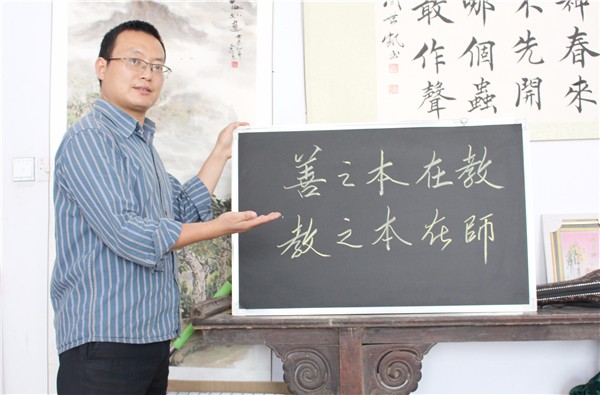 善之本在教
教之本在師
神春來
不先開
哪個蟲
敢作聲